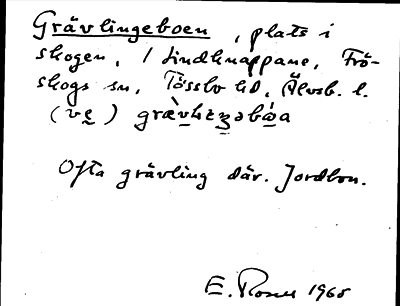 Grävlingeboen, plats i
skogen, i Lindknappane, Frö-
skogs sn, Tössbo hd, Älvsb. l.
(ve)
Ofta grävling där. Jordbon.
E. Rosell 1965